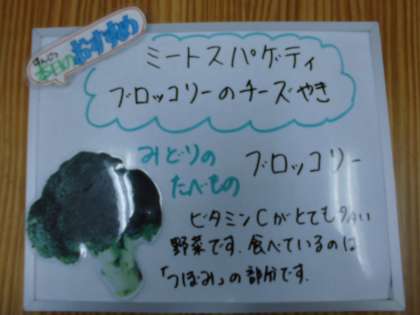 本日の
おすすめ
ミートスパゲティ
ブロッコリーのチーズやき
みどりの
たべもの
ブロッコリー
ビタミンCがとても多い
野菜です。食べているのは
「つぼみ」の部分です。